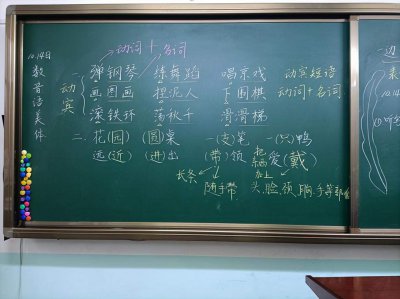 动词 + 名词
10.14日
数音语美体
动宾
弹钢琴 练舞蹈 唱京戏 动宾短语
画图画 捏泥人 下围棋 动词+名词
滚铁环 荡秋千 滑滑梯
二、花(园) (圆)桌 一(支)笔 一(只)鸭
远(近) (进)出 (带)领 爱(戴)
长条 随手带
加上
头、脸、颈、胸、手等部位
一边
10.14